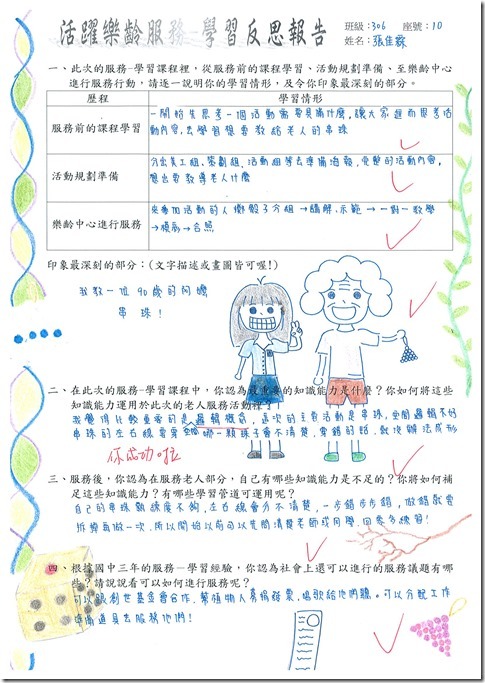 活躍樂齡服務-學習反思報告
班級:306 座號:10
姓名:張佳霖
一、此次的服務-學習課程裡,從服務前的課程學習、活動規劃準備、至樂齡中心
進行服務行動,請逐一說明你的學習情形,及令你印象最深刻的部分。
歷程 學習情形
服務前的課程學習
一開始先思考一個活動需要具備什麼,讓大家進而思考活
動內容,去學習想要教給老人的串珠
活動規劃準備
分出美工組、策劃組、活動組等去準備海報、完整的活動內容,
想出要教導老人什麼
樂齡中心進行服務
來參加活動的人擲骰子分組→講解、示範→一對一教學
→合照
印象最深刻的部分:(文字描述或畫圖皆可喔!)
我教一位90歲的阿嬤
串珠!
二、在此次的服務-學習課程中,你認為最重要的知識能力是什麼?你如何將這些
知識能力運用於此次的老人服務活動裡?
我覺得比較重要的是邏輯概念,這次的主要活動是串珠,空間邏輯不好
串珠的左右線要穿哪一顆珠子會不清楚,穿錯的話,就沒辦法成形
你成功啦
三、服務後,你認為在服務老人部分,自己有哪些知識能力是不足的?你將如何補
足這些知識能力?有哪些學習管道可運用呢?
自己的串珠熟練度不夠,左右線會分不清楚,一步錯步步錯,做錯就要
拆掉再做一次,所以開始以前可以先問清楚老師或同學,回家多練習!
四、根據國中三年的服務-學習經驗,你認為社會上還可以進行的服務議題有哪
些?請說說看可以如何進行服務呢?
可以跟創世基金會合作,幫植物人募捐發票,唱歌給他們聽。可以分配工作
準備道具去服務他們!